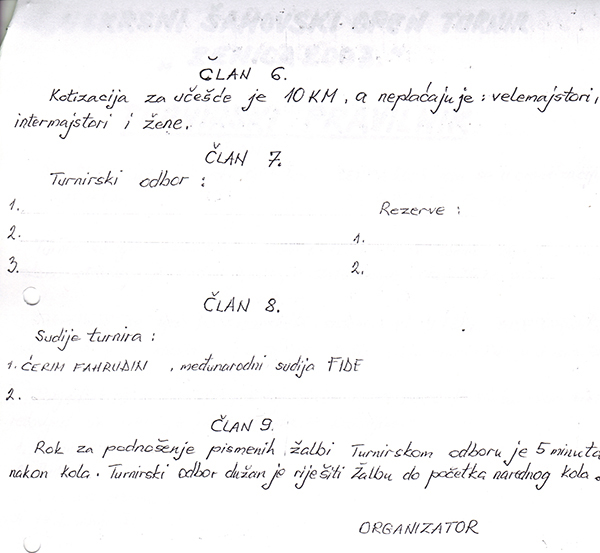 ČLAN 6.
Kotizacija za učešće je 10 KM, a neplaćaju je: velemajstori,
intermajstori i žene.
ČLAN 7.
Turnirski odbor:
1.
Rezerve:
2.
1.
3.
2.
ČLAN 8.
Sudije turnira:
1. ĆERIM FAHRUDIN, međunarodni sudija FIDE
2.
ČLAN 9.
Rok za podnošenje pismenih žalbi Turnirskom odboru je 5 minuta
nakon kola. Turnirski odbor dužan je riješiti žalbu do početka narednog kola.
ORGANIZATOR